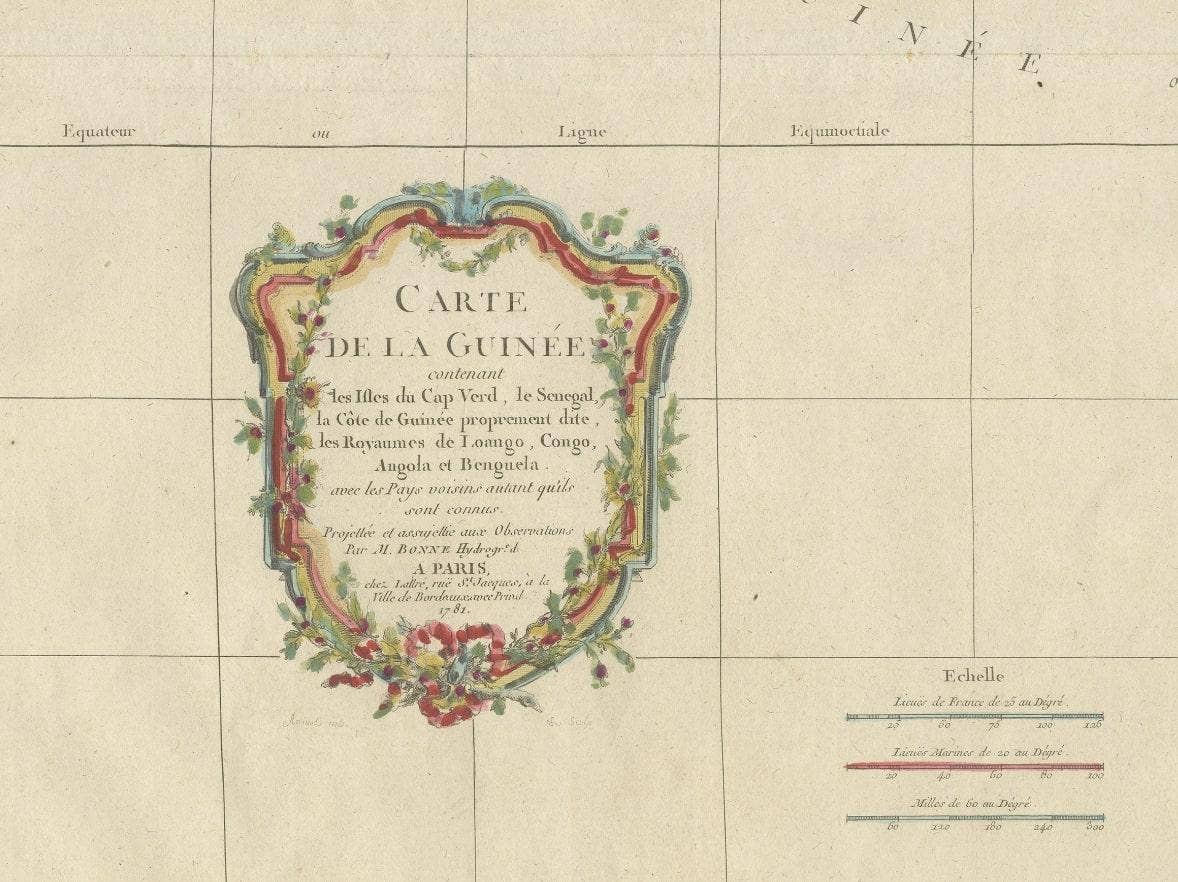 INÉE.
Equateur ou Ligne Equinoctiale
CARTE
DE LA GUINÉE
contenant
les Isles du Cap Verd, le Senegal,
la Côte de Guinée proprement dite,
les Royaumes de Loango, Congo,
Angola et Benguela.
avec les Pays voisins autant qu'ils
sont connus.
Projettée et assujettie aux Observations
Par M. BONNE Hydrogr.
A PARIS,
chez Lattré, rué St. Jacques, à la
Ville de Bordeaux avec Privil.
1781.
Echelle
Lieuës de France de 25 au Dégré.
25 50 75 100 125
Lieuës Marines de 20 au Dégré.
20 40 60 80 100
Milles de 60 au Dégré.
60 120 180 240 300